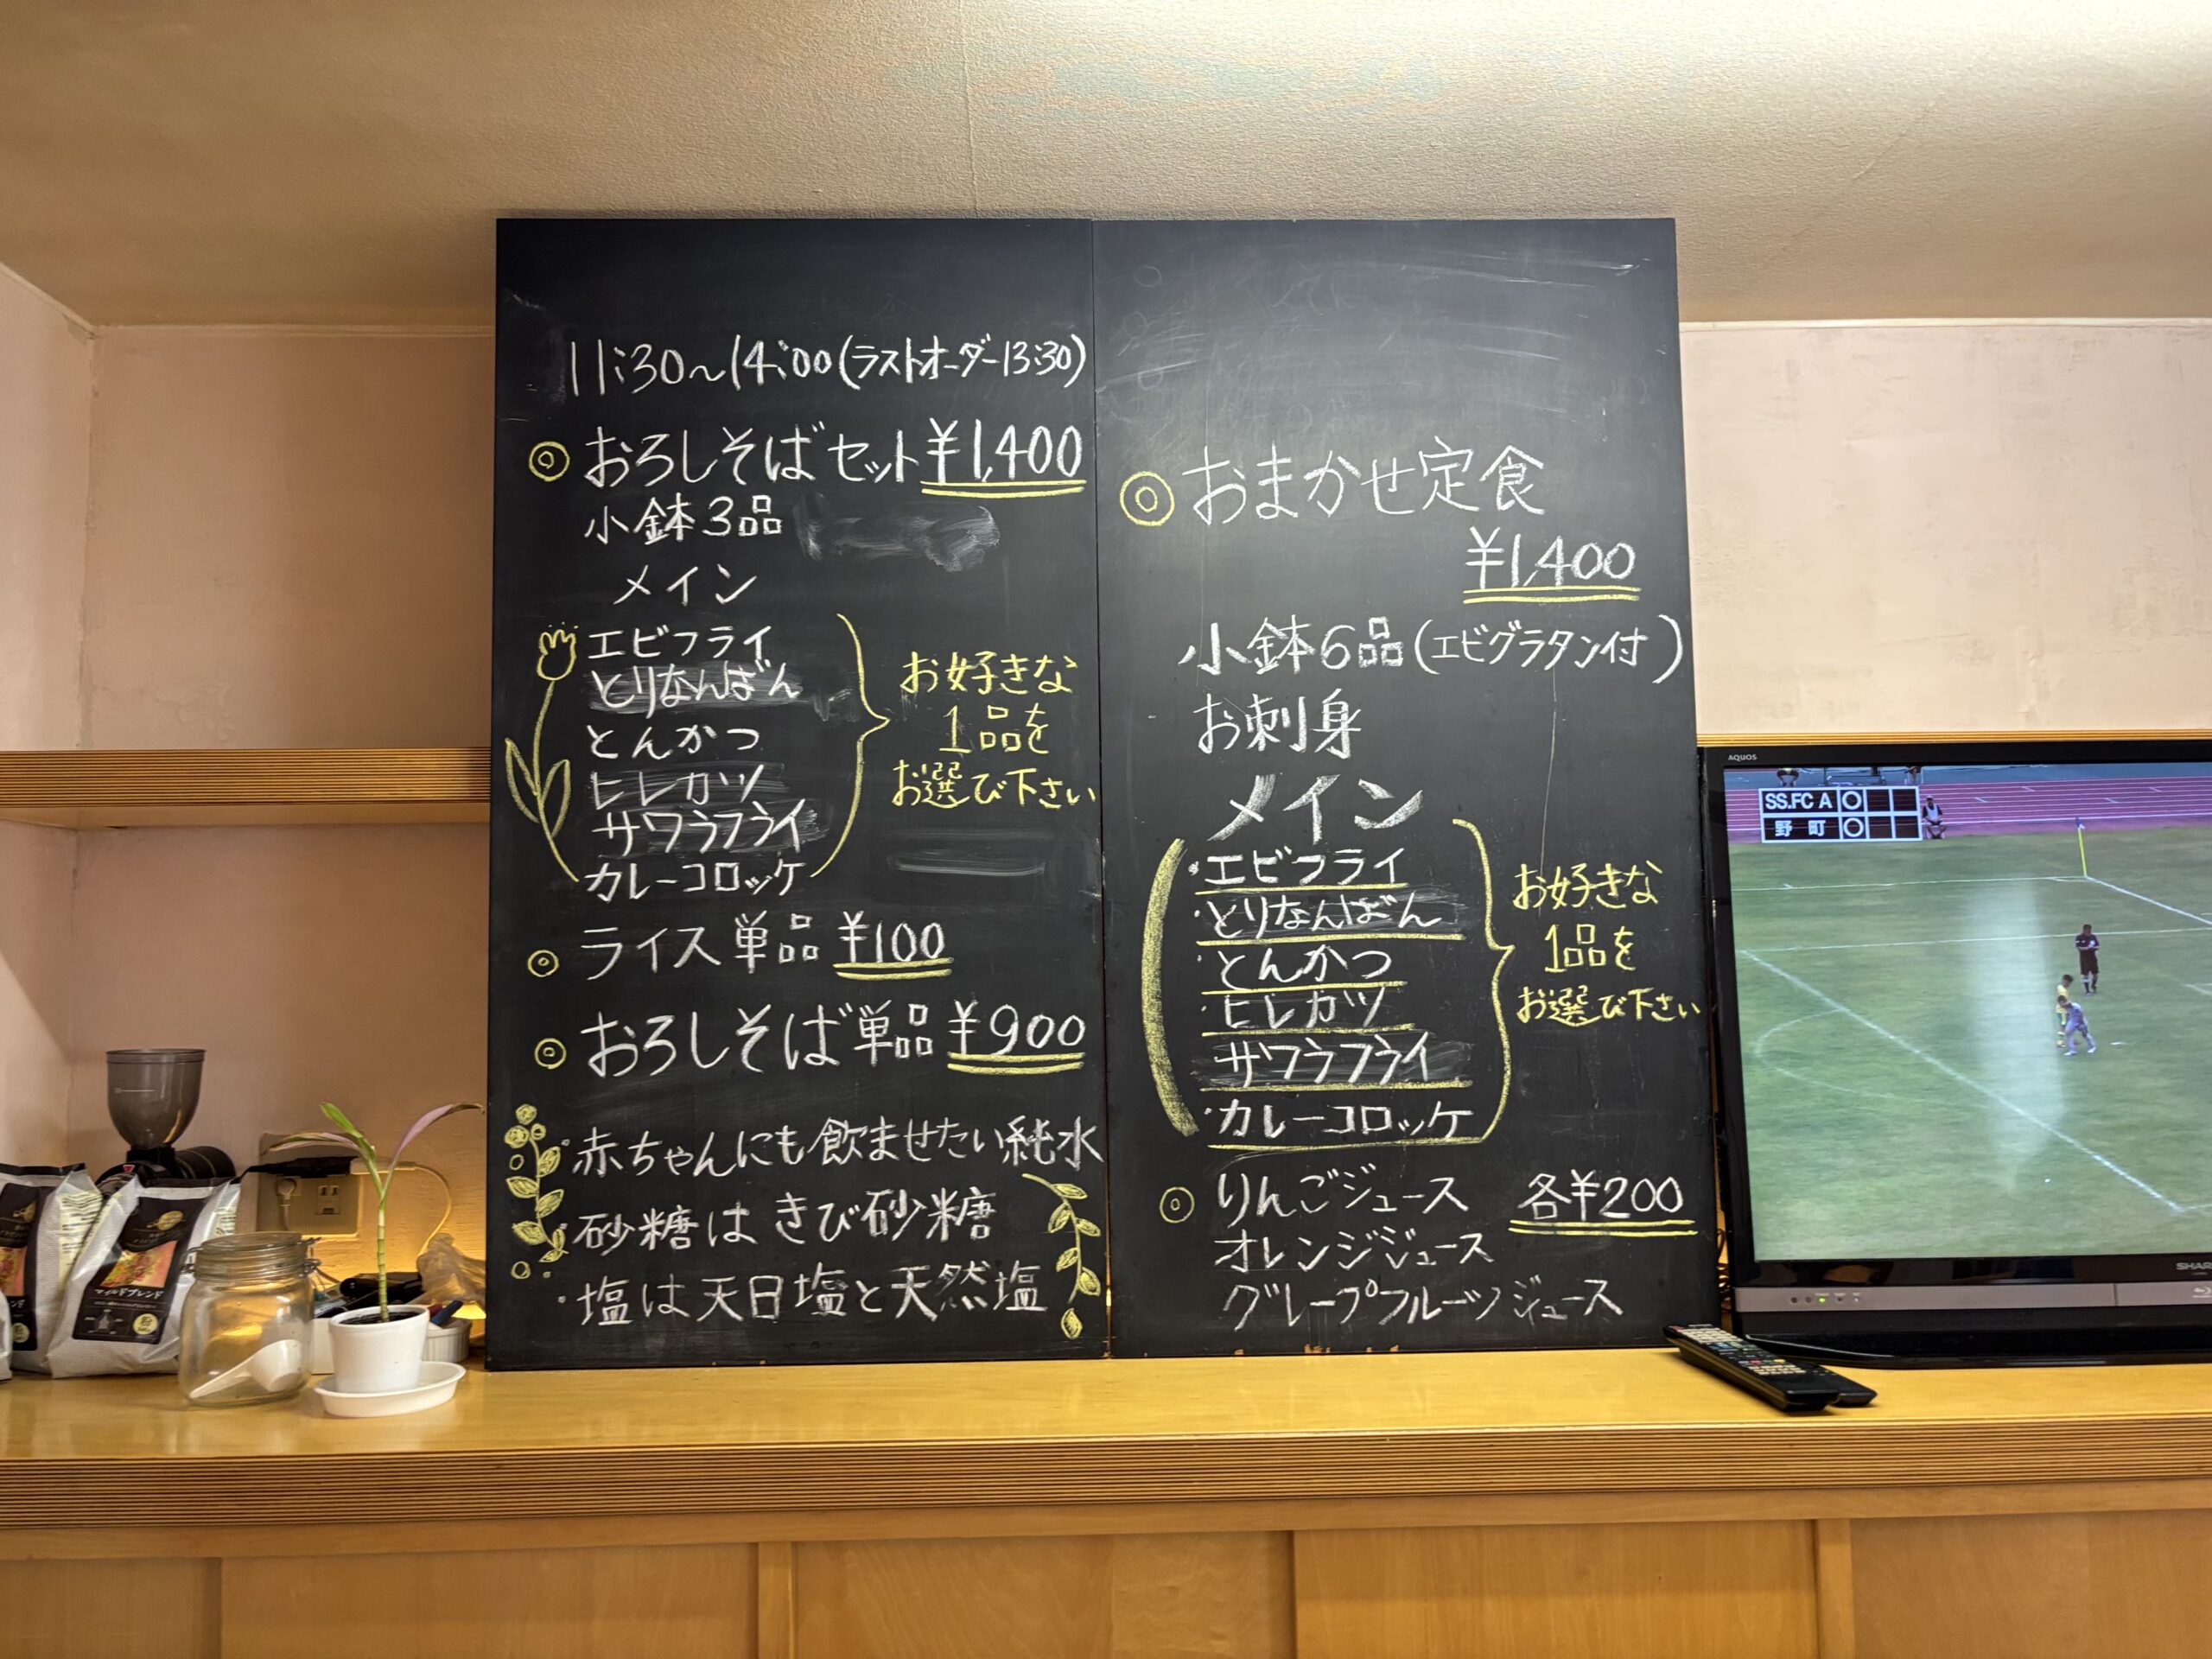 11:30～14:00(ラストオーダー13:30)
◎おろしそばセット¥1,400
小鉢3品
メイン
エビフライ
とりなんばん
とんかつ
ヒレカツ
サワラフライ
カレーコロッケ
お好きな
1品を
お選び下さい
◎ライス単品 ¥100
◎おろしそば単品 ¥900
・赤ちゃんにも飲ませたい純水
・砂糖はきび砂糖
・塩は天日塩と天然塩
◎おまかせ定食
¥1,400
小鉢6品(エビグラタン付)
お刺身
メイン
・エビフライ
・とりなんばん
・とんかつ
・ヒレカツ
サワラフライ
・カレーコロッケ
お好きな
1品を
お選び下さい
◎りんごジュース 各¥200
オレンジジュース
グレープフルーツジュース
AQUOS
SS.FC A
野町
SHAR
マイルドブレンド